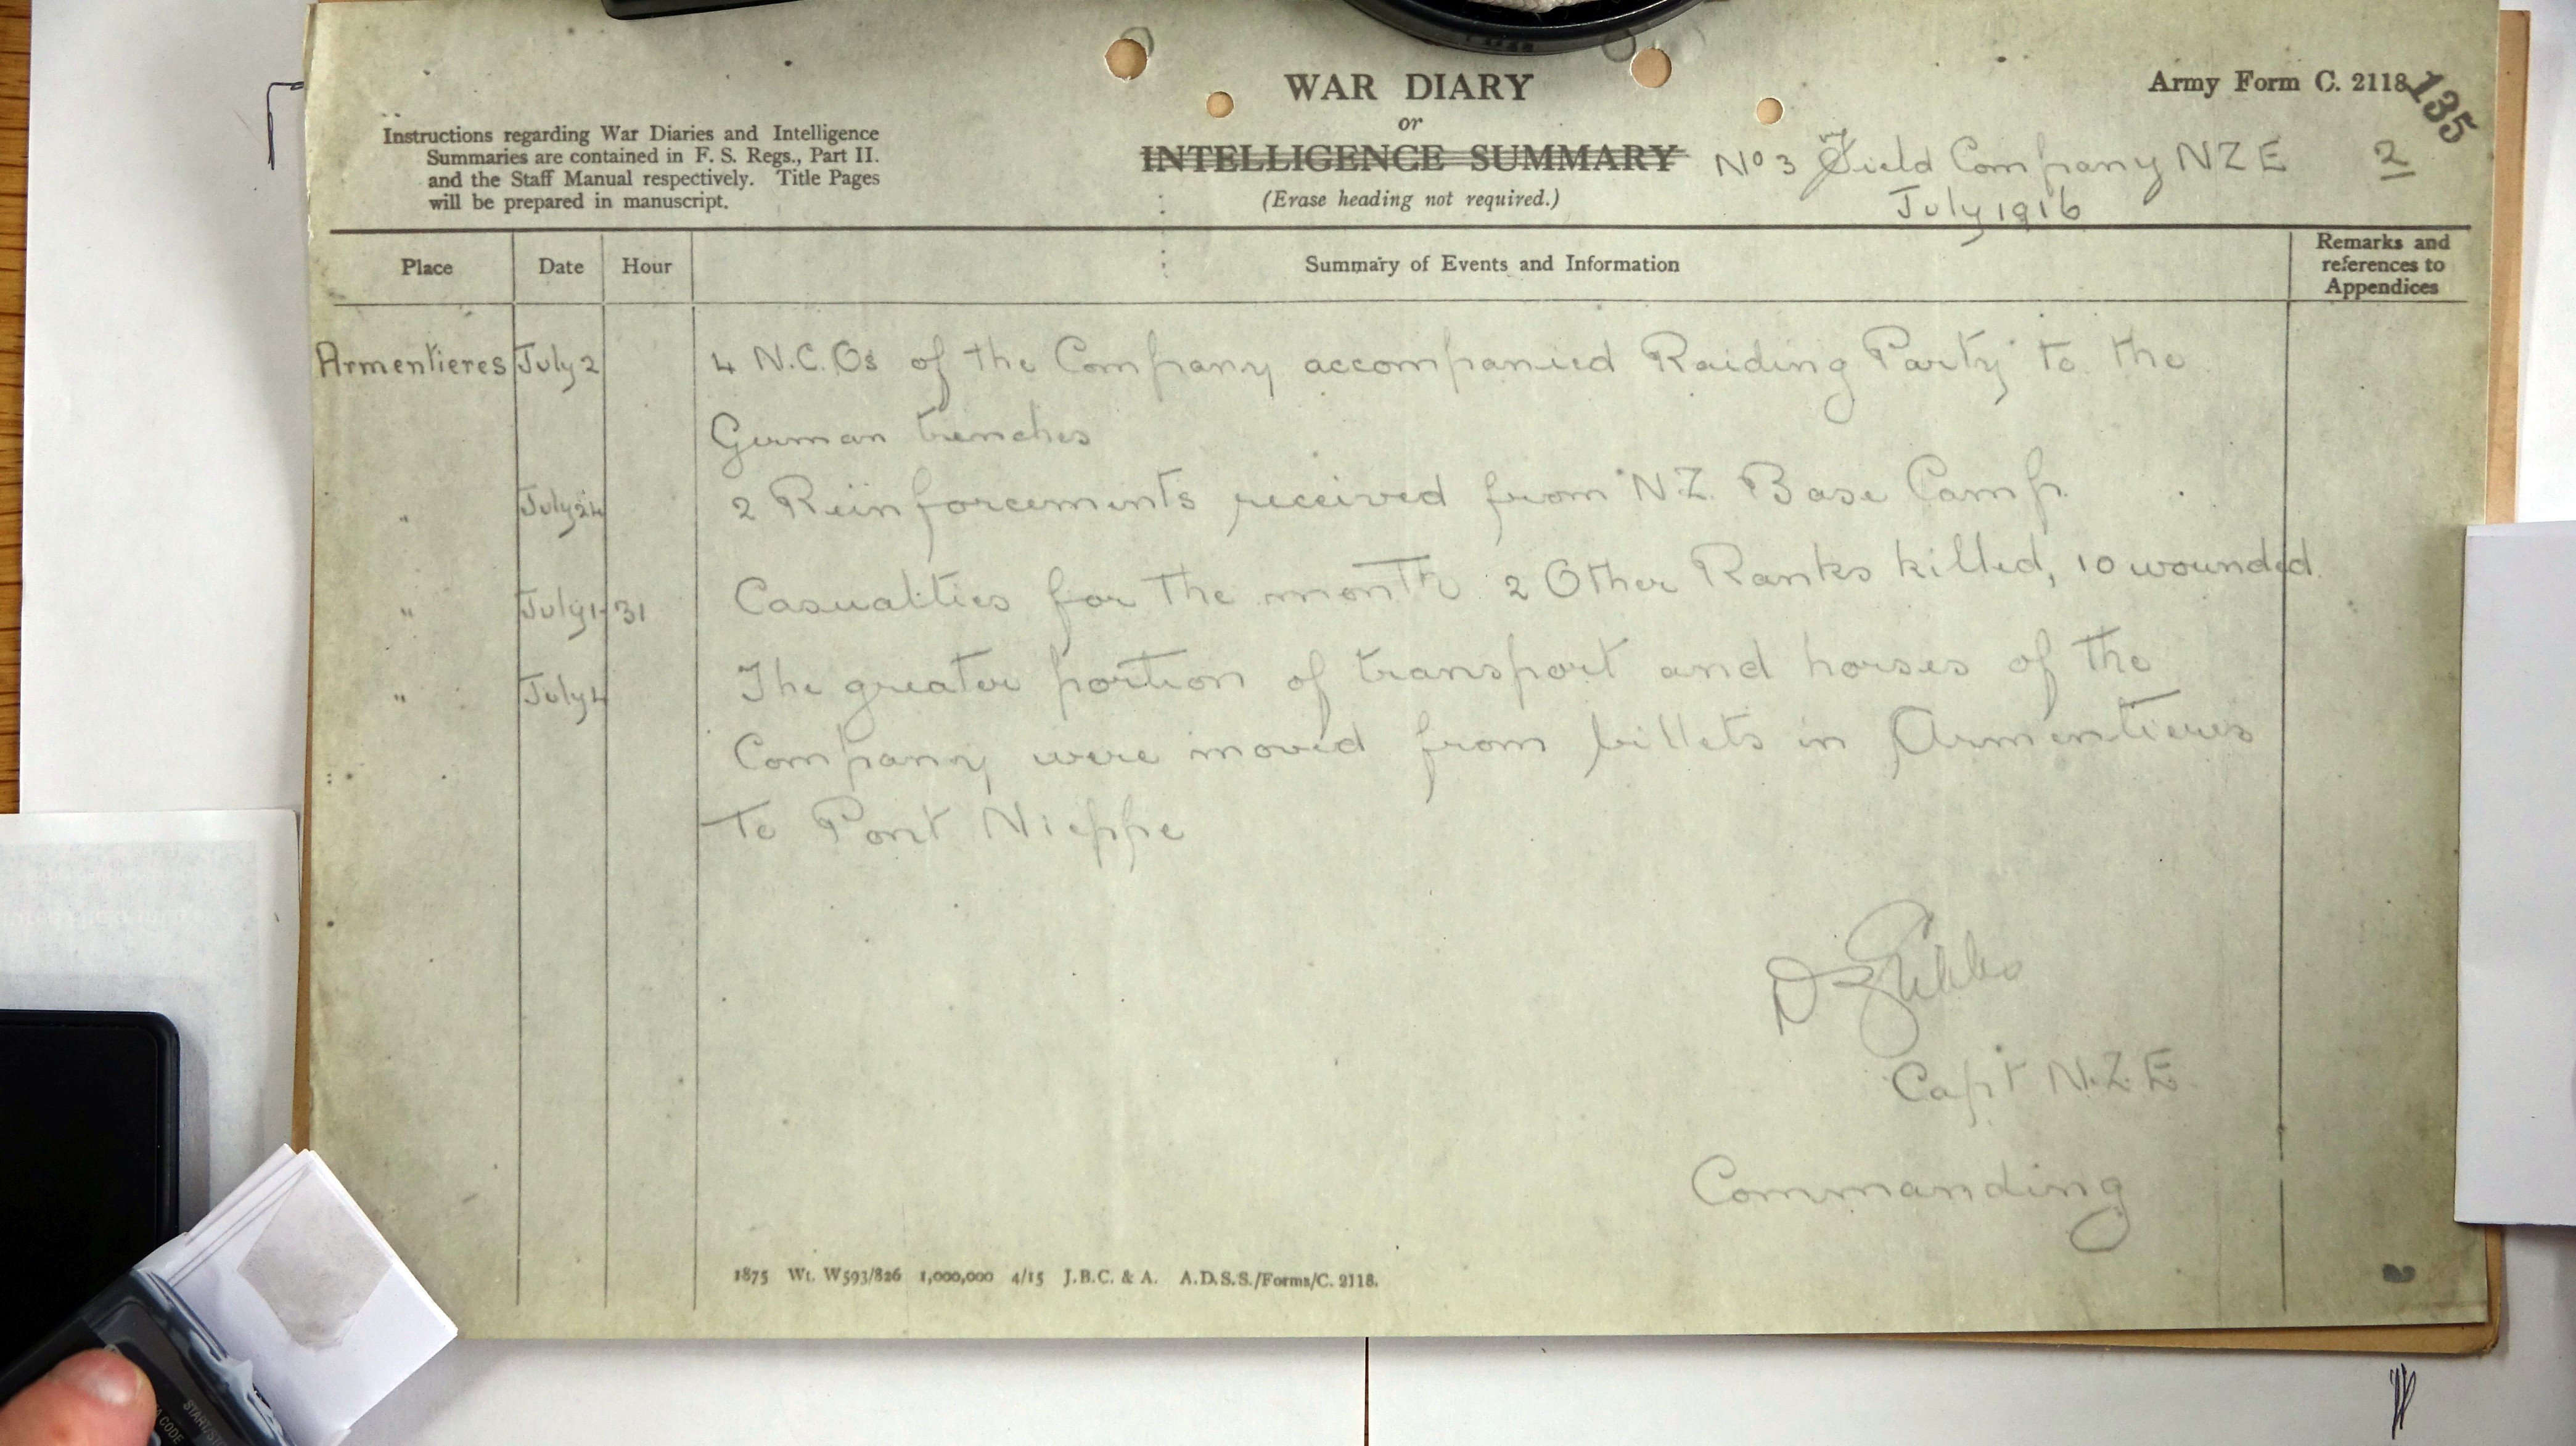 WAR DIARY
or
INTELLIGENCE SUMMARY
(Erase heading not required.)
Army Form C. 2118
135
Instructions regarding War Diaries and Intelligence
Summaries are contained in F. S. Regs., Part II.
and the Staff Manual respectively. Title Pages
will be prepared in manuscript.
No 3 Field Company NZE
July 1916
2
Place Date Hour Summary of Events and Information
Remarks and
references to
Appendices
Armentieres July 2 4 N.C.Os of the Company accompanied Raiding Party to the
German trenches
" July 24 2 Reinforcements received from N.Z. Base Camp.
" July 1-31 Casualties for the month 2 Other Ranks killed, 10 wounded.
" July 4 The greater portion of transport and horses of the
Company were moved from billets in Armentieres
to Pont Nieppe
Gibbs
Capt N.Z.E
Commanding
1875 Wt. W593/826 1,000,000 4/15 J.B.C. & A. A.D.S.S./Forms/C. 2118.